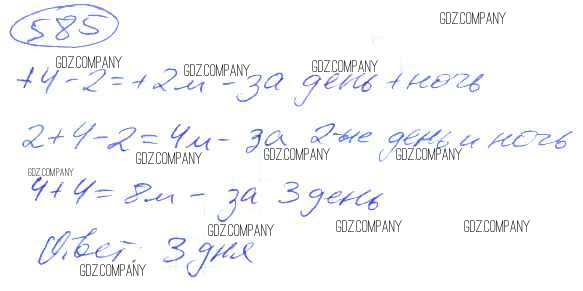 585
GDZ.COMPANY
GDZ.COMPANY GDZ.COMPANY GDZ.COMPANY
+4-2=+2м - за день+ночь
2+4-2=4м - за 2-ые день и ночь
GDZ.COMPANY GDZ.COMPANY GDZ.COMPANY
GDZ.COMPANY
4+4=8м - за 3 день
GDZ.COMPANY GDZ.COMPANY GDZ.COMPANY
Ответ: 3 дня
GDZ.COMPANY